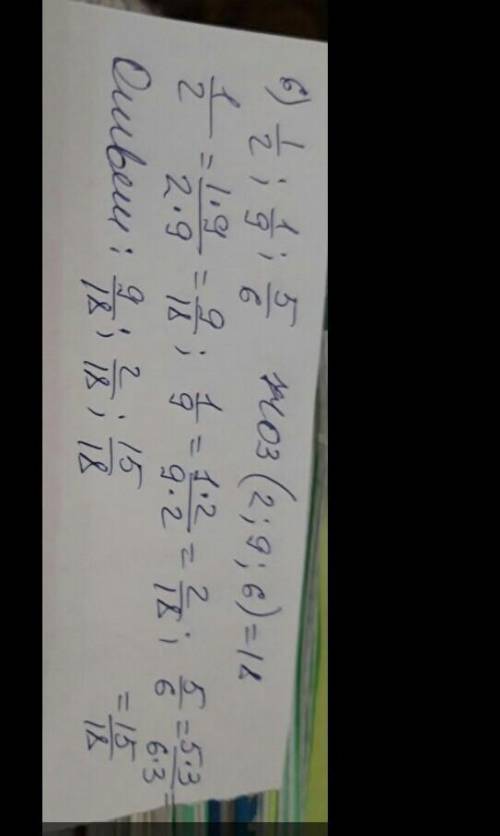 б) 1/2; 1/9; 5/6 НОЗ (2; 9; 6) = 18
1/2 = 1·9/2·9 = 9/18; 1/9 = 1·2/9·2 = 2/18; 5/6 = 5·3/6·3 =
= 15/18
Ответ: 9/18; 2/18; 15/18